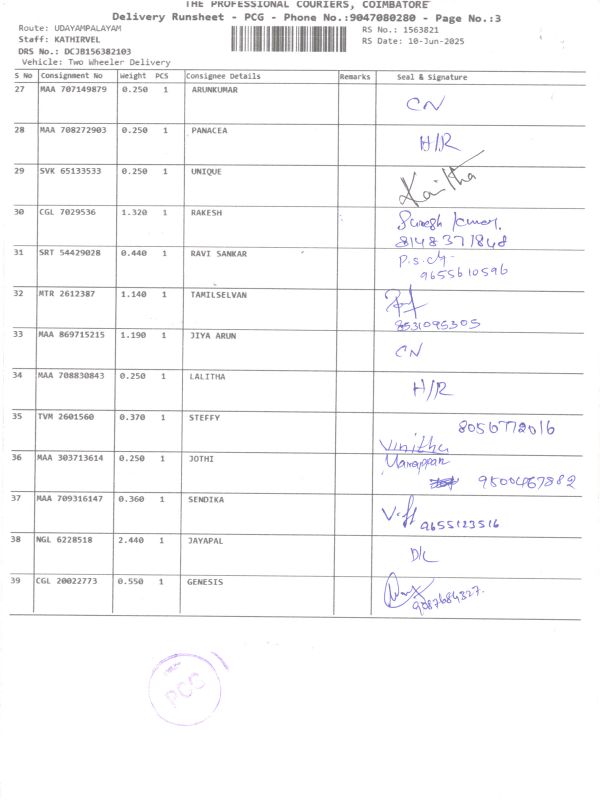 THE PROFESSIONAL COURIERS, COIMBATORE
Delivery Runsheet - PCG - Phone No.:9047080280 - Page No.:3
Route: UDAYAMPALAYAM RS No.: 1563821
Staff: KATHIRVEL RS Date: 10-Jun-2025
DRS No.: DCJB156382103
Vehicle: Two Wheeler Delivery
S No Consignment No Weight PCS Consignee Details Remarks Seal & Signature
27 MAA 707149879 0.250 1 ARUNKUMAR CN
28 MAA 708272903 0.250 1 PANACEA H/R
29 SVK 65133533 0.250 1 UNIQUE Kavitha
30 CGL 7029536 1.320 1 RAKESH Suresh Kumar.
8148371848
31 SRT 54429028 0.440 1 RAVI SANKAR P.S.G
9655610596
32 MTR 2612387 1.140 1 TAMILSELVAN
8531095305
33 MAA 869715215 1.190 1 JIYA ARUN CN
34 MAA 708830843 0.250 1 LALITHA H/R
35 TVM 2601560 0.370 1 STEFFY 8056772016
Vinitha
36 MAA 303713614 0.250 1 JOTHI
9500467882
37 MAA 709316147 0.360 1 SENDIKA
9655123516
38 NGL 6228518 2.440 1 JAYAPAL D/L
39 CGL 20022773 0.550 1 GENESIS
9087684327.
PCG